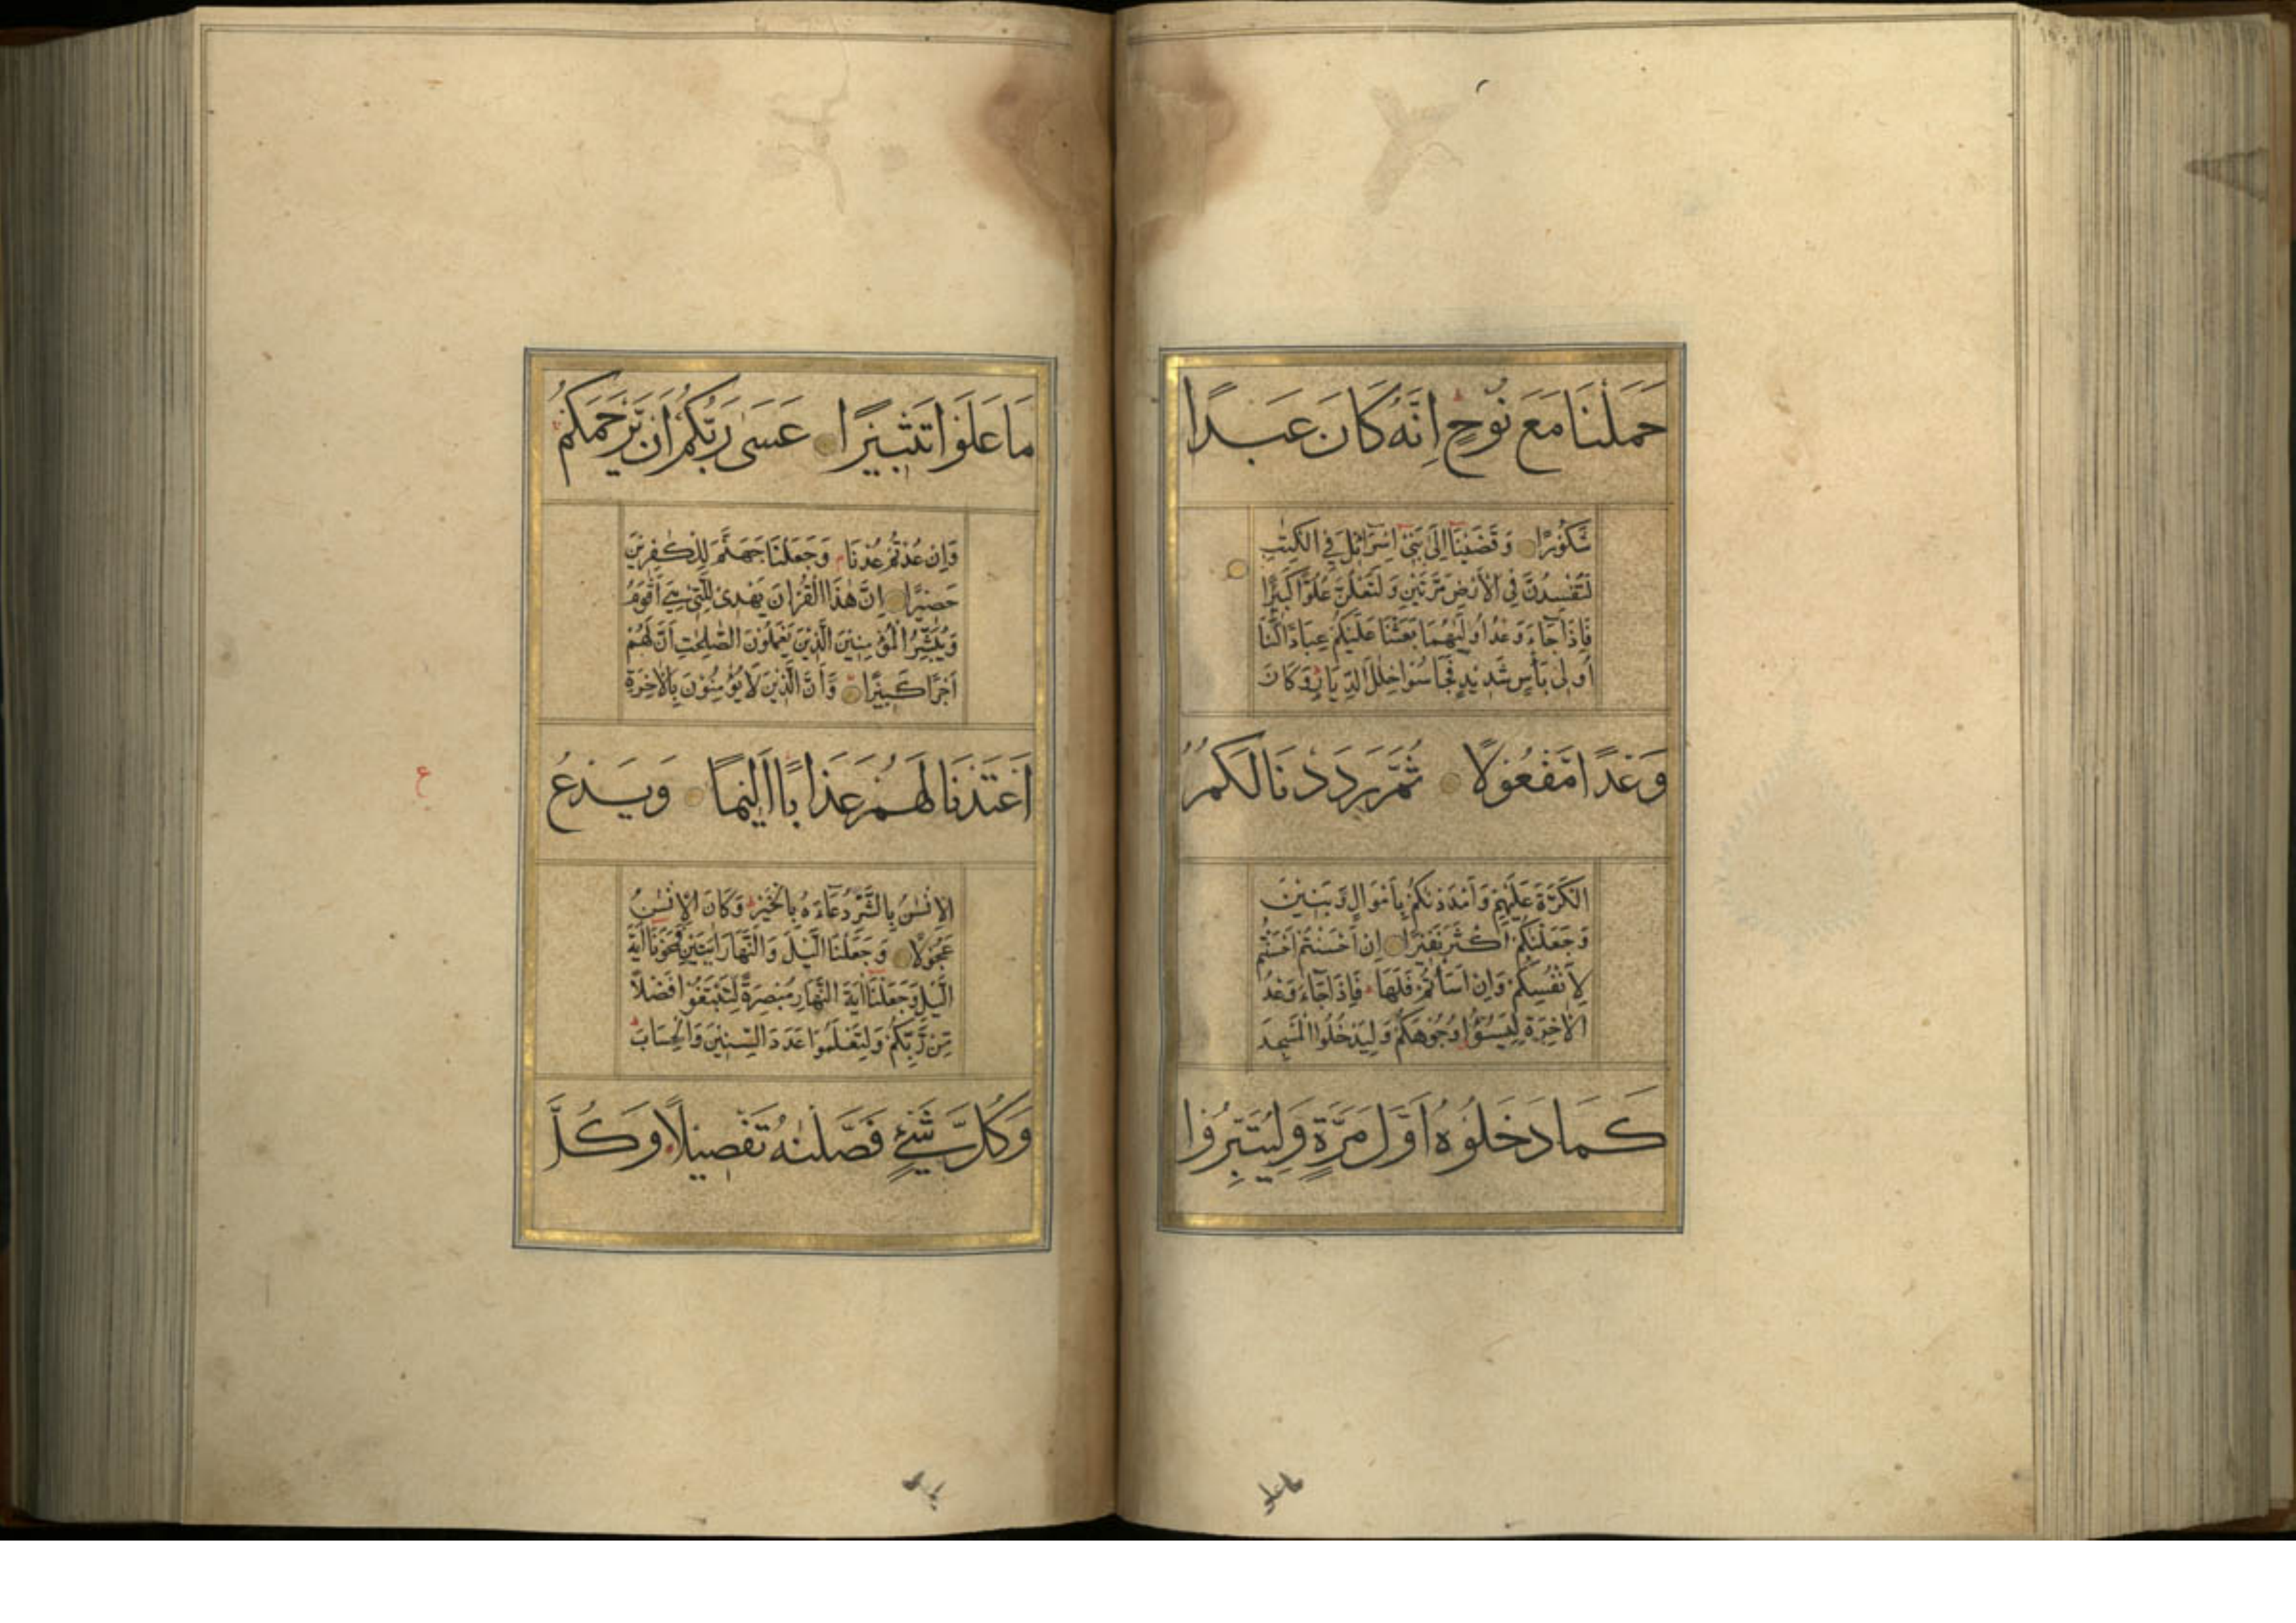 حَمَلْنَا مَعَ نُوْحٍ اِنَّهٗ كَانَ عَبْدًا
شَكُوْرًا وَقَضَيْنَا اِلٰى بَنِيْ اِسْرَائِيْلَ فِي الْكِتٰبِ
لَتُفْسِدُنَّ فِي الْاَرْضِ مَرَّتَيْنِ وَلَتَعْلُنَّ عُلُوًّا كَبِيْرًا
فَاِذَا جَآءَ وَعْدُ اُوْلٰىهُمَا بَعَثْنَا عَلَيْكُمْ عِبَادًا لَّنَا
اُولِيْ بَاْسٍ شَدِيْدٍ فَجَاسُوْا خِلٰلَ الدِّيَارِ وَكَانَ
وَعْدًا مَّفْعُوْلًا ثُمَّ رَدَدْنَا لَكُمُ
الْكَرَّةَ عَلَيْهِمْ وَاَمْدَدْنٰكُمْ بِاَمْوَالٍ وَّبَنِيْنَ
وَجَعَلْنٰكُمْ اَكْثَرَ نَفِيْرًا اِنْ اَحْسَنْتُمْ اَحْسَنْتُمْ
لِاَنْفُسِكُمْ وَاِنْ اَسَاْتُمْ فَلَهَا فَاِذَا جَآءَ وَعْدُ
الْاٰخِرَةِ لِيَسُوْٓءٗا وُجُوْهَكُمْ وَلِيَدْخُلُوا الْمَسْجِدَ
كَمَا دَخَلُوْهُ اَوَّلَ مَرَّةٍ وَّلِيُتَبِّرُوْا
ما علو
مَا عَلَوْا تَتْبِيْرًا عَسٰى رَبُّكُمْ اَنْ يَّرْحَمَكُمْ
وَاِنْ عُدْتُّمْ عُدْنَا وَجَعَلْنَا جَهَنَّمَ لِلْكٰفِرِيْنَ
حَصِيْرًا اِنَّ هٰذَا الْقُرْاٰنَ يَهْدِيْ لِلَّتِيْ هِيَ اَقْوَمُ
وَيُبَشِّرُ الْمُؤْمِنِيْنَ الَّذِيْنَ يَعْمَلُوْنَ الصّٰلِحٰتِ اَنَّ لَهُمْ
اَجْرًا كَبِيْرًا وَّاَنَّ الَّذِيْنَ لَا يُؤْمِنُوْنَ بِالْاٰخِرَةِ
اَعْتَدْنَا لَهُمْ عَذَابًا اَلِيْمًا وَيَدْعُ
ع
الْاِنْسٰنُ بِالشَّرِّ دُعَآءَهٗ بِالْخَيْرِ وَكَانَ الْاِنْسٰنُ
عَجُوْلًا وَجَعَلْنَا الَّيْلَ وَالنَّهَارَ اٰيَتَيْنِ فَمَحَوْنَا اٰيَةَ
الَّيْلِ وَجَعَلْنَا اٰيَةَ النَّهَارِ مُبْصِرَةً لِّتَبْتَغُوْا فَضْلًا
مِّنْ رَّبِّكُمْ وَلِتَعْلَمُوْا عَدَدَ السِّنِيْنَ وَالْحِسَابَ
وَكُلَّ شَيْءٍ فَصَّلْنٰهُ تَفْصِيْلًا وَكُلَّ